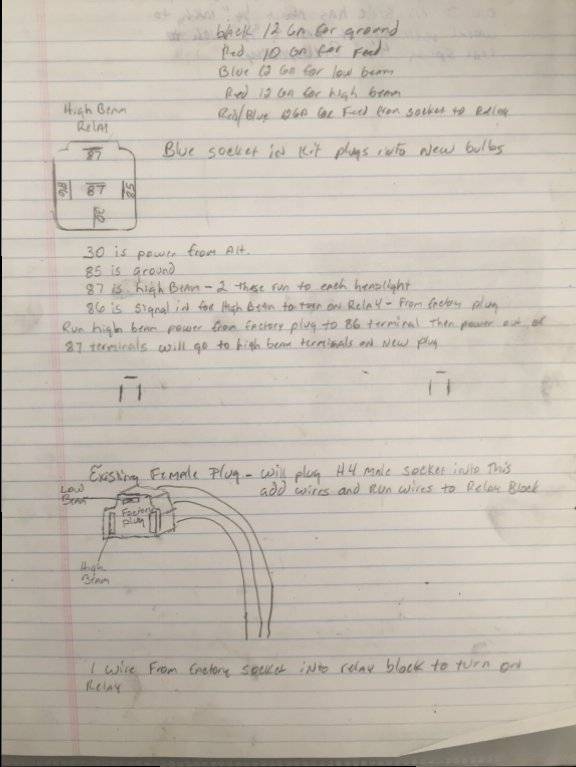 black 12 Ga for ground
Red 10 Ga for Feed
Blue 12 Ga for low beam
Red 12 Ga for high beam
Red/Blue 12GA for Feed from socket to Relay
High Beam
Relay
Blue socket in kit plugs into New bulbs
87
86
87
85
30
30 is power from Alt.
85 is ground
87 is high Beam - 2 these run to each headlight
86 is Signal in for High Beam to turn on Relay - From factory plug
Run high beam power from factory plug to 86 terminal then power out of
87 terminals will go to high beam terminals on New plug
Existing Female Plug - will plug H4 male socket into This
add wires and Run wires to Relay Block
Low
Beam
Factory
plug
High
Beam
1 wire From factory socket into relay block to turn on
Relay